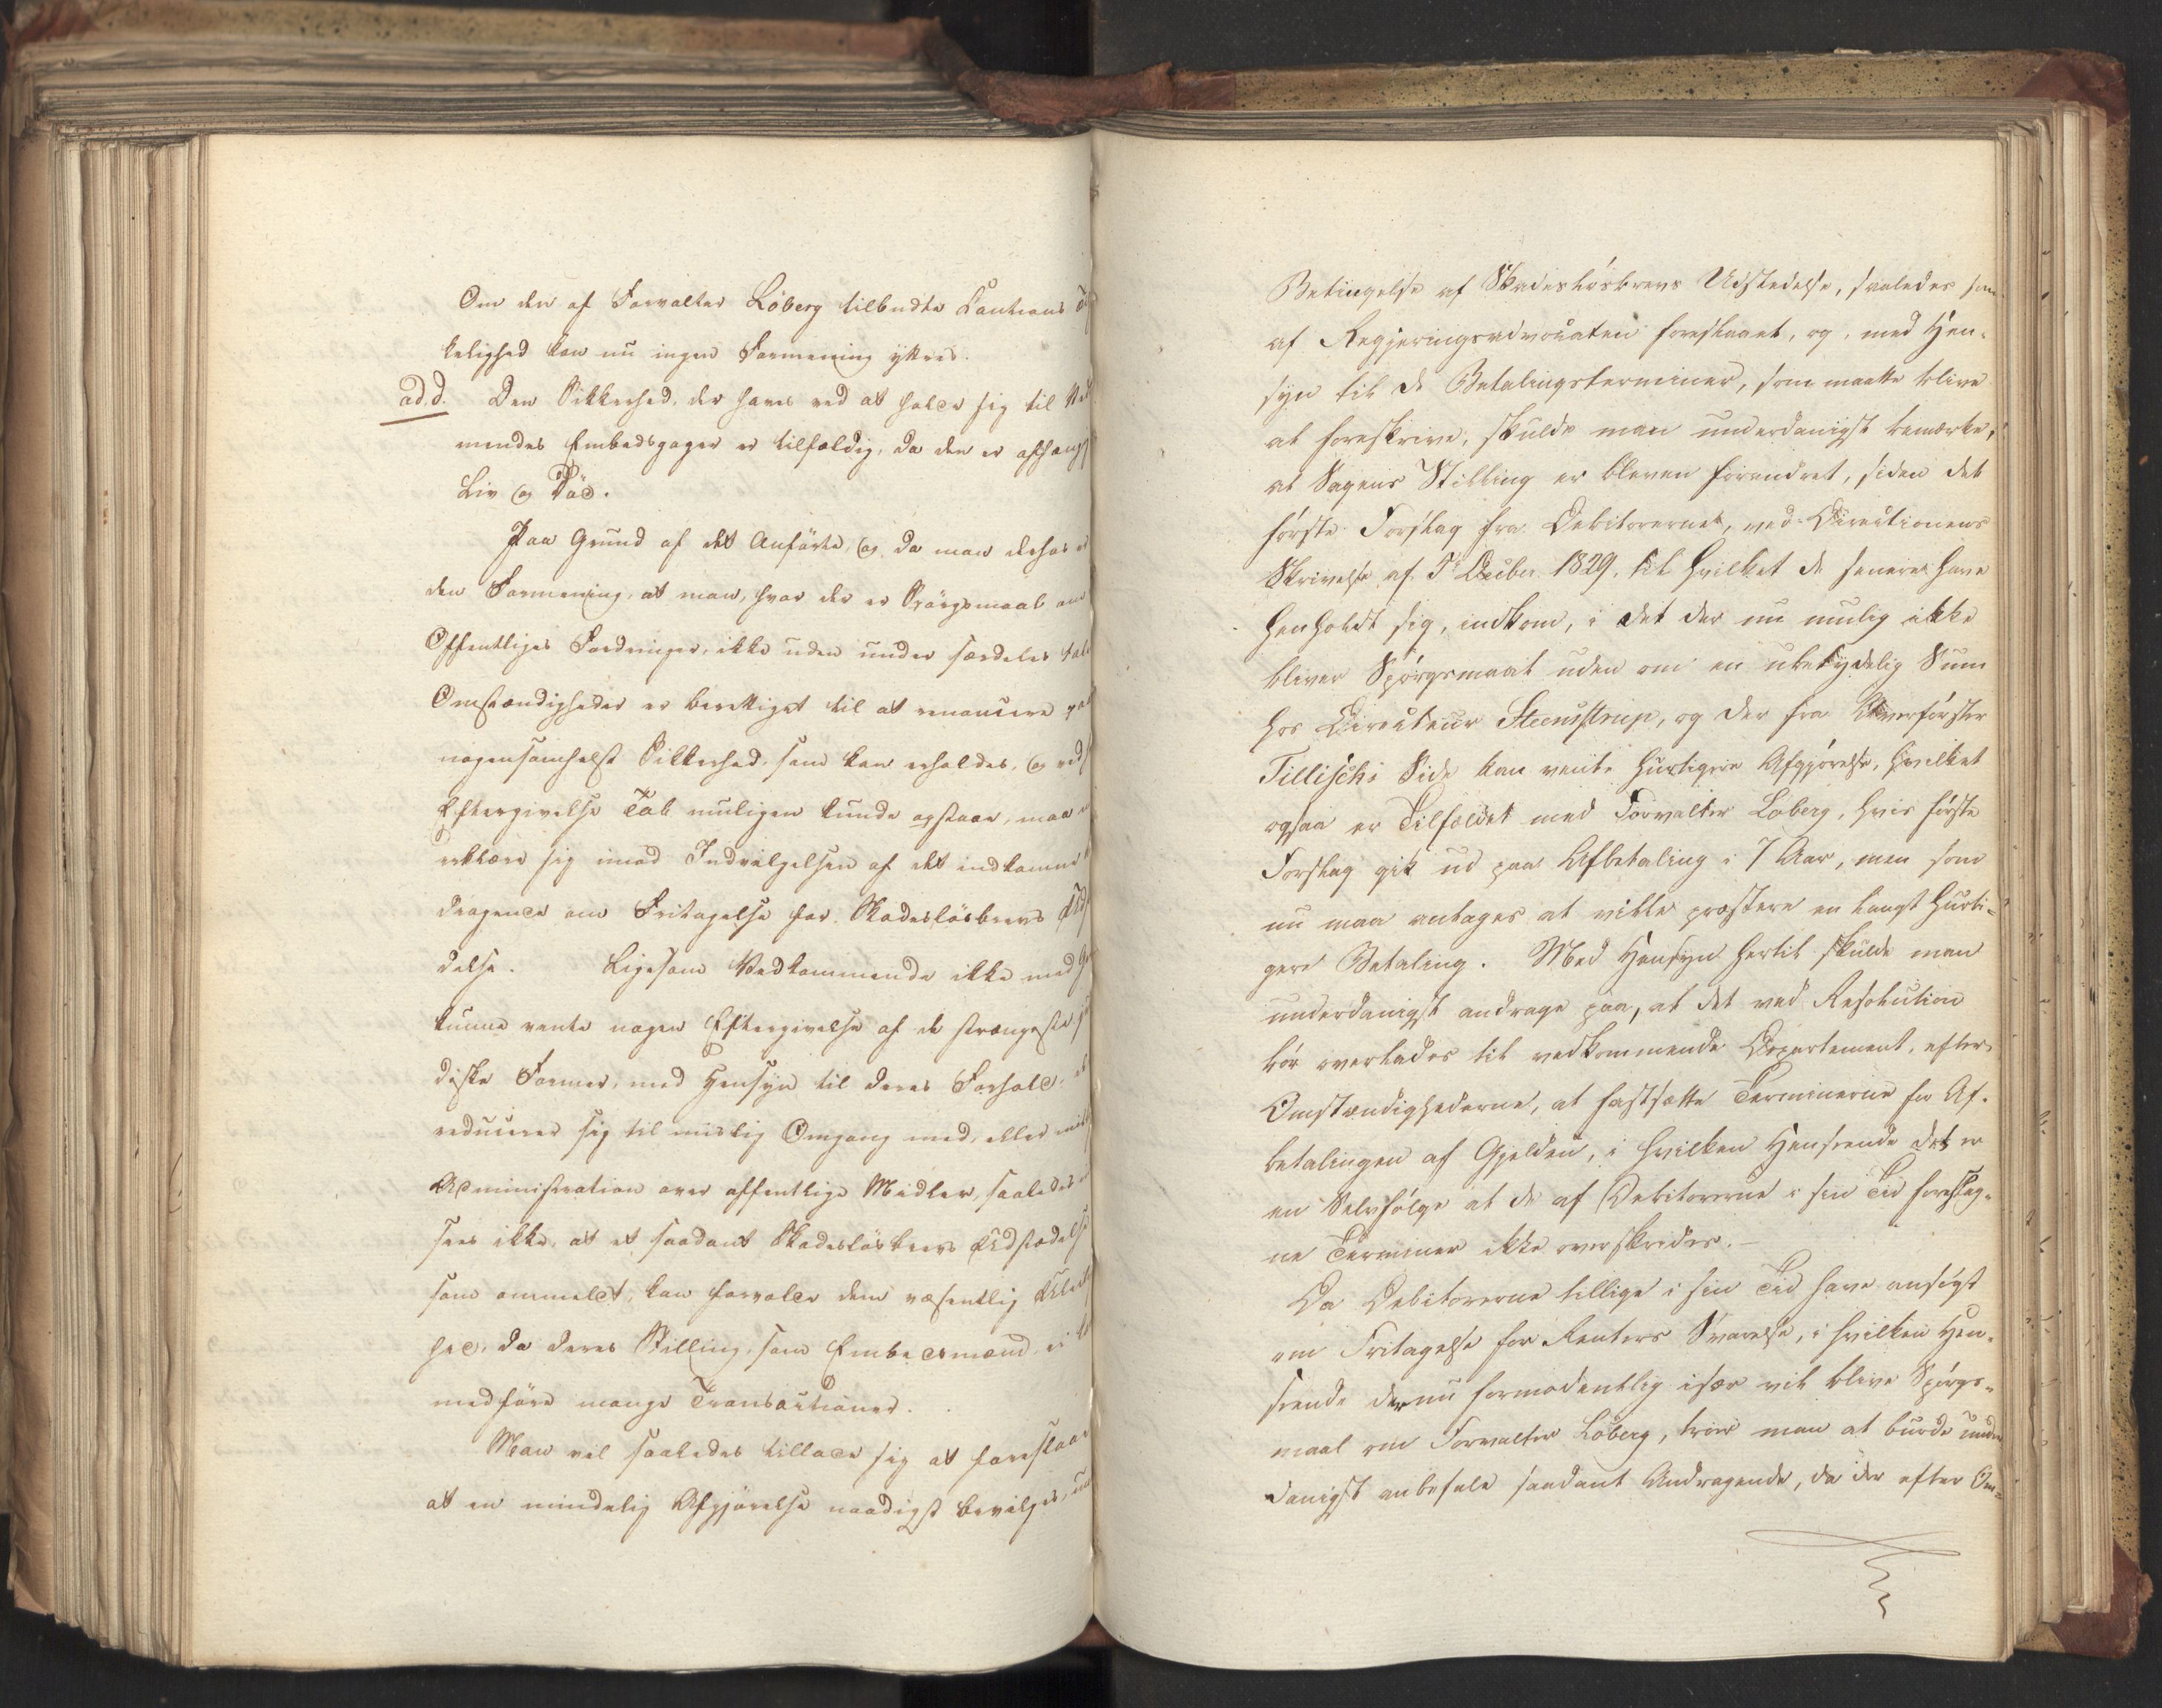 Om den af Forvalter Löberg tilbudte Cautions
kelighed kan nu ingen Formening yttres.
ad. d. Den Sikkerhed, der haves ved at holde sig til
mendes Embedsgager er tilfældig, da den er afhængig
Liv og Död.
Paa Grund af det Anförte, og da man derhos er
den Formening, at man, hvor der er Spörgsmaal om
Offentliges Fordringer, ikke uden under særdeles
Omstændigheder er berettiget til at renoncere paa
nogensomhelst Sikkerhed, som kan erholdes, og ved
Eftergivelse Tab muligen kunde opstaae, maa
erklære sig imod Indvilgelsen af det indkomne
dragende om Fritagelse for Skadeslösbrevs
delse. Ligesom Vedkommende ikke med
kunne vente nogen Eftergivelse af de strængeste
diske Former, med Hensyn til deres Forhold,
reducerer sig til mislig Omgang med, eller
Administration over offentlige Midler, saaledes
sees ikke, at et saadant Skadeslösbrevs Udstædelse
som ommeldt, kan forvolde dem væsentlig
hed, da deres Stilling, som Embedsmænd, ei
medföre mange Transactioner.
Man vil saaledes tillade sig at foreslaae
at en mindelig Afgjörelse naadigst bevilges,
Betingelse af Skadeslösbrevs Udstedelse, saaledes som
af Regjeringsadvocaten foreslaaet, og, med Hen-
syn til de Betalingsterminer, som maatte blive
at foreskrive, skulde man underdanigst bemærke,
at Sagens Stilling er bleven forandret, siden det
förste Forslag fra Debitorerne, ved Directionens
Skrivelse af 5 Decbr 1829, til hvilket de senere have
henholdt sig, indkom, i det der nu mulig ikke
bliver Spörgsmaal uden om en ubetydelig Sum
hos Directeur Steenstrup, og der fra Overförster
Tillisch's Side kan ventes hurtigere Afgjörelse, hvilket
ogsaa er Tilfældet med Forvalter Löberg, hvis förste
Forslag gik ud paa Afbetaling i 7 Aar, men som
nu maa antages at ville præstere en langt hurti-
gere Betaling. Med Hensyn hertil skulde man
underdanigst andrage paa, at det ved Resolution
bör overlades til vedkommende Departement, efter
Omstændighederne, at fastsætte Terminerne for Af-
betalingen af Gjelden, i hvilken Henseende det er
en Selvfölge at de af Debitorerne i sin Tid foreslag-
ne Terminer ikke overskrides.-
Da Debitorerne tillige i sin Tid have ansögt
om Fritagelse for Renters Svarelse, i hvilken Hen-
seende der nu formodentlig især vil blive Spörgs-
maal om Forvalter Löberg, troer man at burde under
danigst anbefale saadant Andragende, da der efter Om-